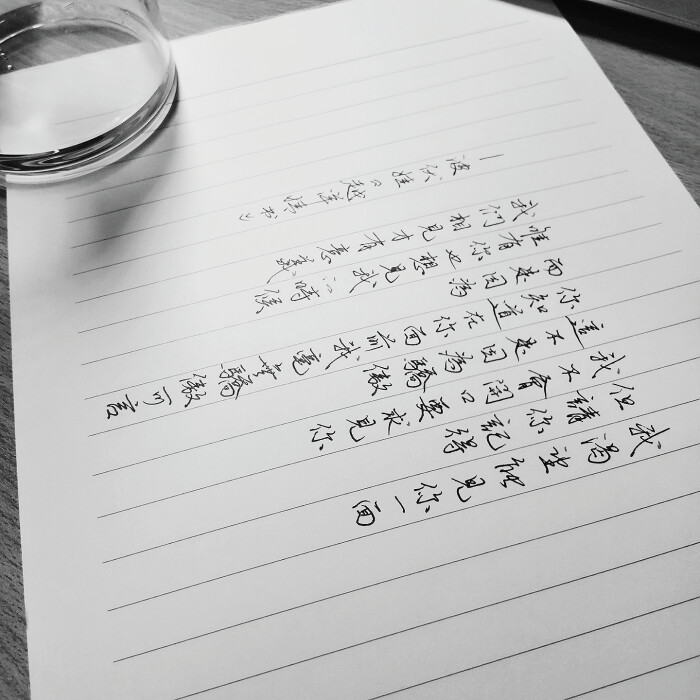 我渴望能見你一面
但請你記得
我不會開口要求見你
這不是因為驕傲
你知道在你面前我毫無驕傲可言
而是因為
惟有你也想見我的時候
我們相見才有意義
—波伏娃《越洋情書》